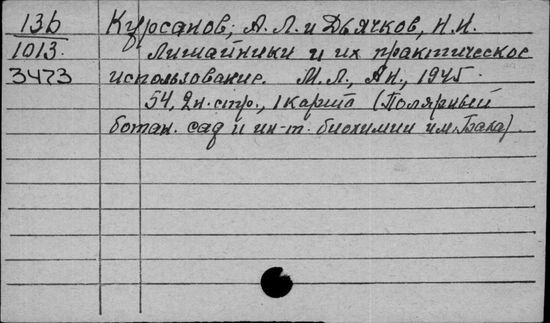 13б Курсанов, А. Л. и Дьячков, Н. Н.
1013. Лишайники и их практическое
3473 использование. М.Л., Ан., 1945.
54, 2н. стр., 1 карт. (Полярный
ботан. сад и ин-т. биохимии им. Баха).